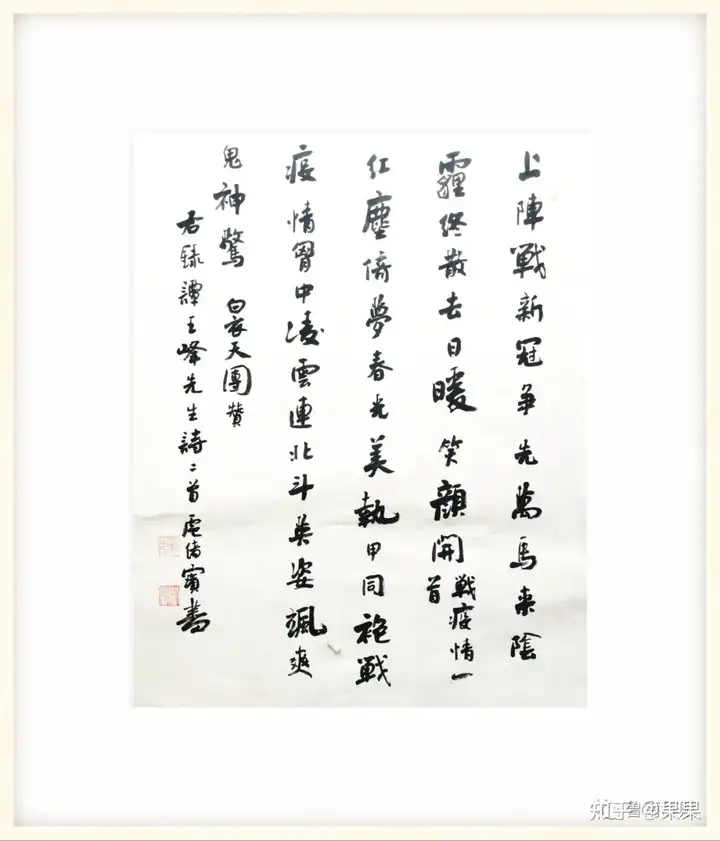 上陣戰新冠爭先萬馬來陰
霾終散去日暖笑顏開
戰疫情一
首
红塵倚夢春光美執甲同袍戰
疫情胷中凌雲連北斗英姿颯爽
鬼神驚
白衣天團贊
右録譚王峰先生詩二首 賓書
知乎 @果果